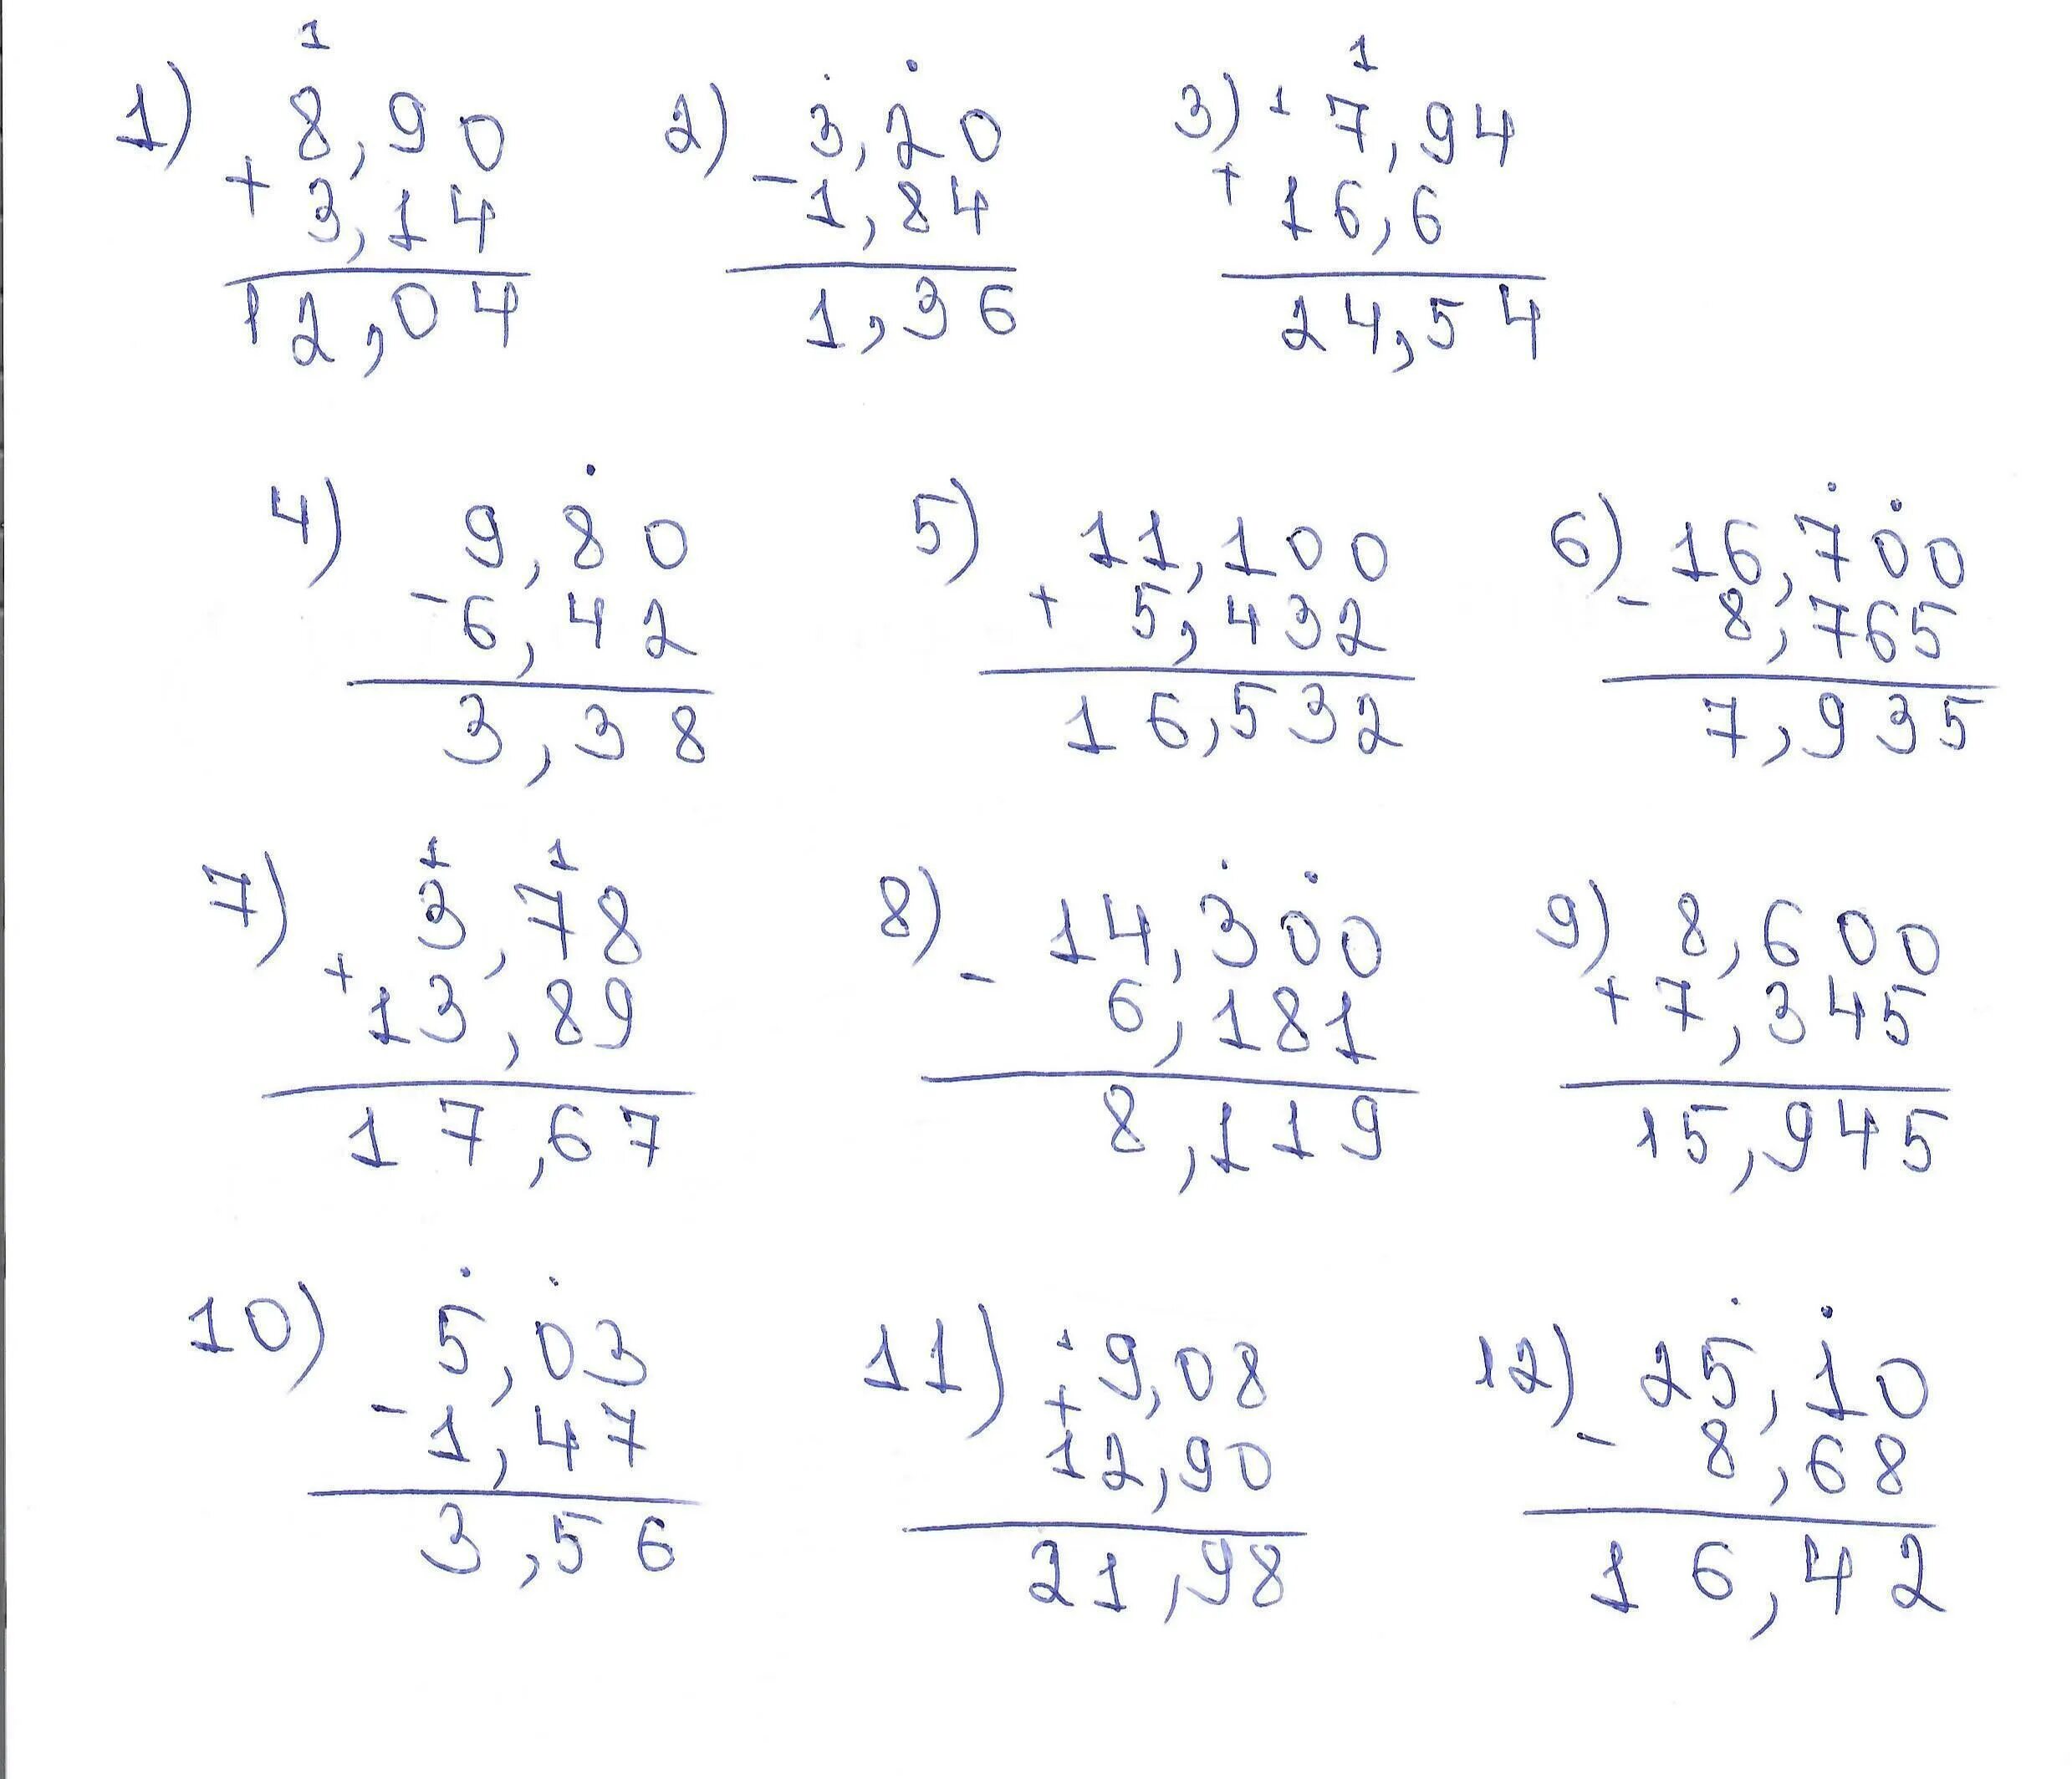 1 1
1) 8,90 2) 3,20 3) 1 7,94
+ 3,14 - 1,84 + 16,6
12,04 1,36 24,54
4) 9,80 5) 11,100 6) 16,700
- 6,42 + 5,432 - 8,765
3,38 16,532 7,935
1 1
7) 3,78 8) 14,300 9) 8,600
+ 13,89 - 6,181 + 7,345
17,67 8,119 15,945
10) 5,03 11) 1 9,08 12) 25,10
- 1,47 + 12,90 - 8,68
3,56 21,98 16,42